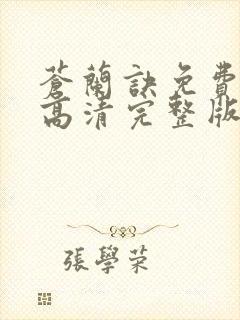 蒼蘭訣免費
高清完整版
張學荣